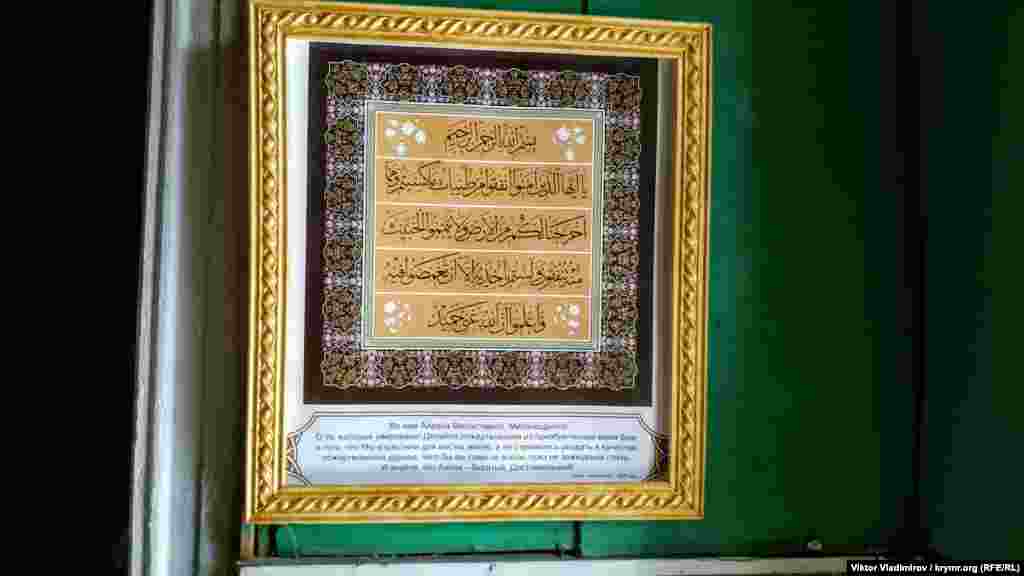 بسم الله الرحمن الرحيم
يا أيها الذين آمنوا أنفقوا من طيبات ما كسبتم ومما
أخرجنا لكم من الأرض ولا تيمموا الخبيث
منه تنفقون ولستم بآخذيه إلا أن تغمضوا فيه
واعلموا أن الله غني حميد
Во имя Аллаха Милостивого, Милосердного!
О те, которые уверовали! Делайте пожертвования из приобретенных вами благ
и того, что Мы взрастили для вас на земле, и не стремитесь раздать в качестве
пожертвования дурное, чего бы вы сами не взяли, пока не зажмурили глаза.
И знайте, что Аллах – Богатый, Достохвальный!
Viktor Vladimirov / krymr.org (RFE/RL)